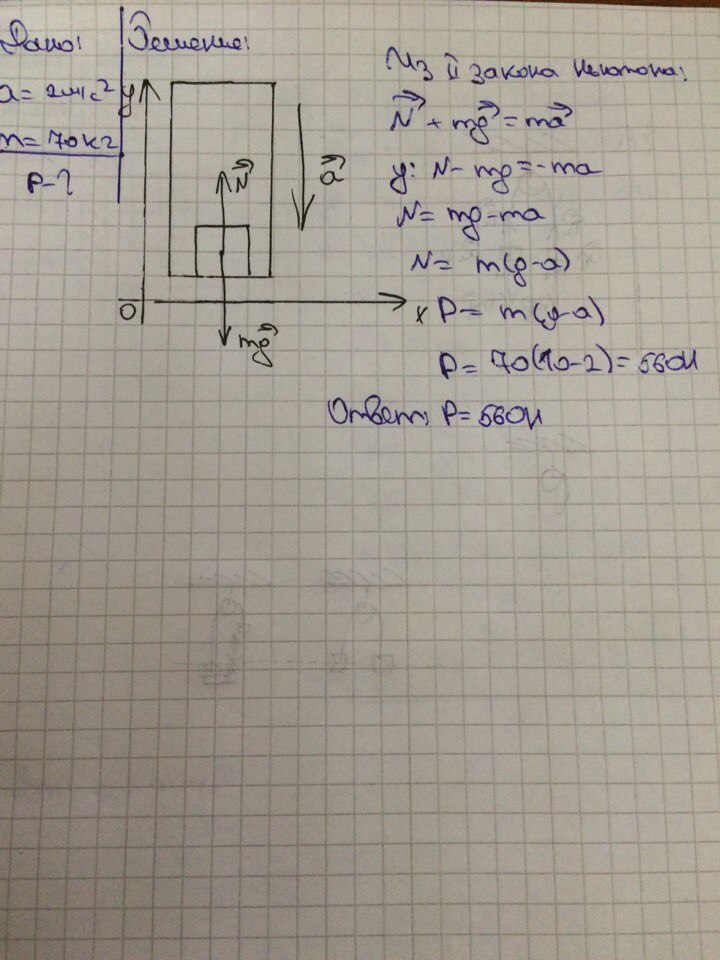 Дано:
a = 2м/с²
m = 70кг
P-?
Решение:
y
N
a
O
x
mg
Из II закона Ньютона:
N + mg = ma
y: N - mg = -ma
N = mg - ma
N = m(g-a)
P = m(g-a)
P = 70(10-2) = 560Н
Ответ: P = 560Н